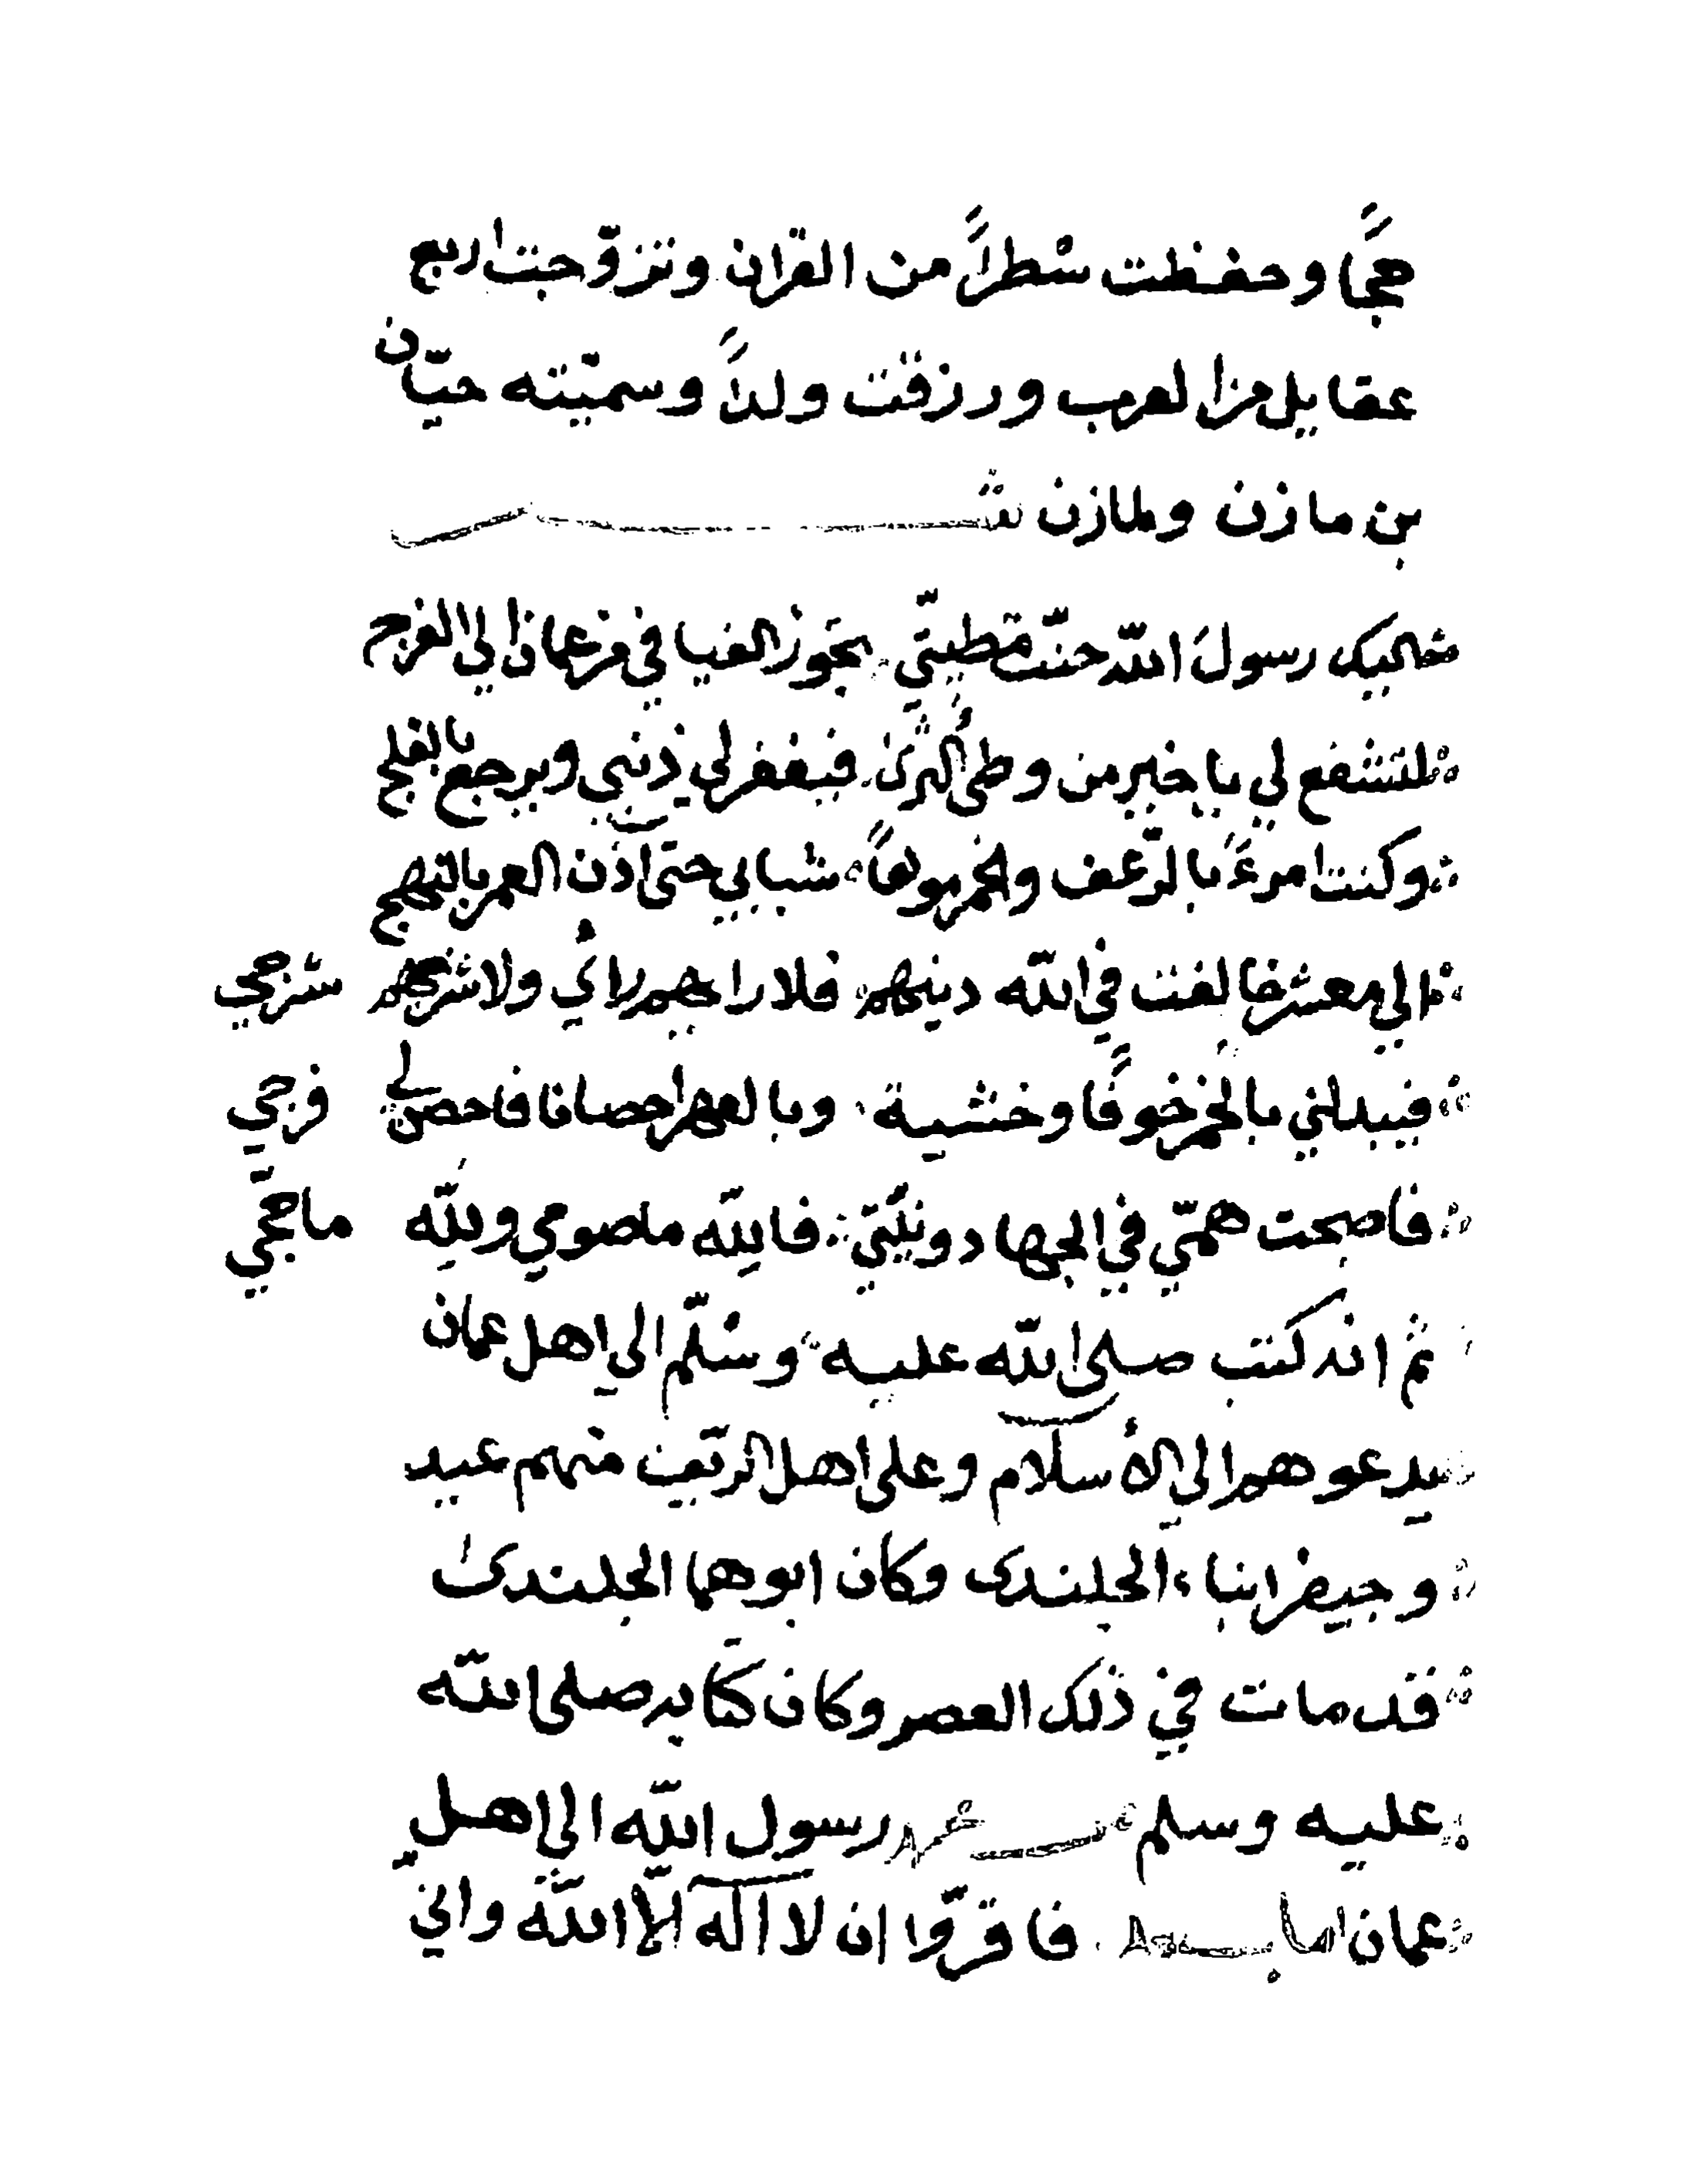 حججاً وحفظت شطراً من القران وتزوّجت اربع
عقايل من العرب ورزقت ولداً وسميّته حيّان
بن مازن ولمازن شعر
اليك رسولَ الله حنّت مطيتّي تجوز الفيافي من عمان الى العرج
لتشفع لي يا خير من وطئ الثرىٰ فيغفر لي ذنبي ويرجع بالفلج
وكنت امرءً بالرّغف والخمر مولعاً شبابي حتى اذن العمر بالنهج
الي معشر خالفت في الله دينهم فلا رايهم رائي ولا شرجهم شرجي
فيبدلني بالخمر خوفًا وخشية وبالعهر احصانا فاحصن لي فرجي
فاصبحت همّتي في الجهاد ونيّتي فالله ما صومي ولله ما حجّي
ثم انه كتب صلى الله عليه وسلّم الى اهل عمان
يدعوهم الى الأسلام وعلى اهل الرّيف منهم عبيد
وجيفر ابنا الجلندى وكان ابوهما الجلندىٰ
قد مات في ذلك العصر وكان كتابه صلى الله
عليه وسلم من محمد رسول الله الى اهل
عمان اما بعد فاقرّوا ان لا اله الا الله واني